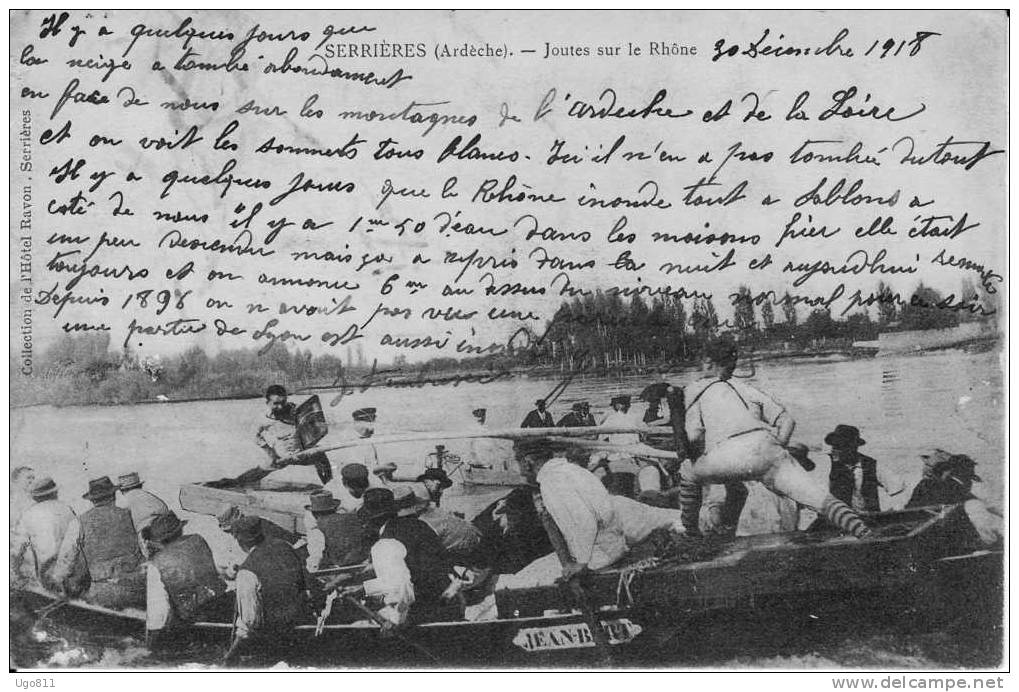 Il y a quelques jours que
SERRIÈRES (Ardèche). — Joutes sur le Rhône
30 Décembre 1918
la neige a tombé abondament
en face de nous sur les montagnes de l'ardeche et de la Loire
et on voit les sommets tous blancs. Ici il n'en a pas tombé dutout
Il y a quelques jours que le Rhône inonde tout a Sablons a
coté de nous il y a 1m50 d'eau dans les maisons hier elle était
un peu descendu mais ça a repris dans la nuit et aujourd'hui semble
toujours et on annonce 6m au dessus du niveau normal pour ce soir
Depuis 1896 on n avait pas vu une
une partie de Lyon est aussi
Collection de l'Hôtel Ravon, Serrières
JEAN-B
Ugo811
http://www.delcampe.net